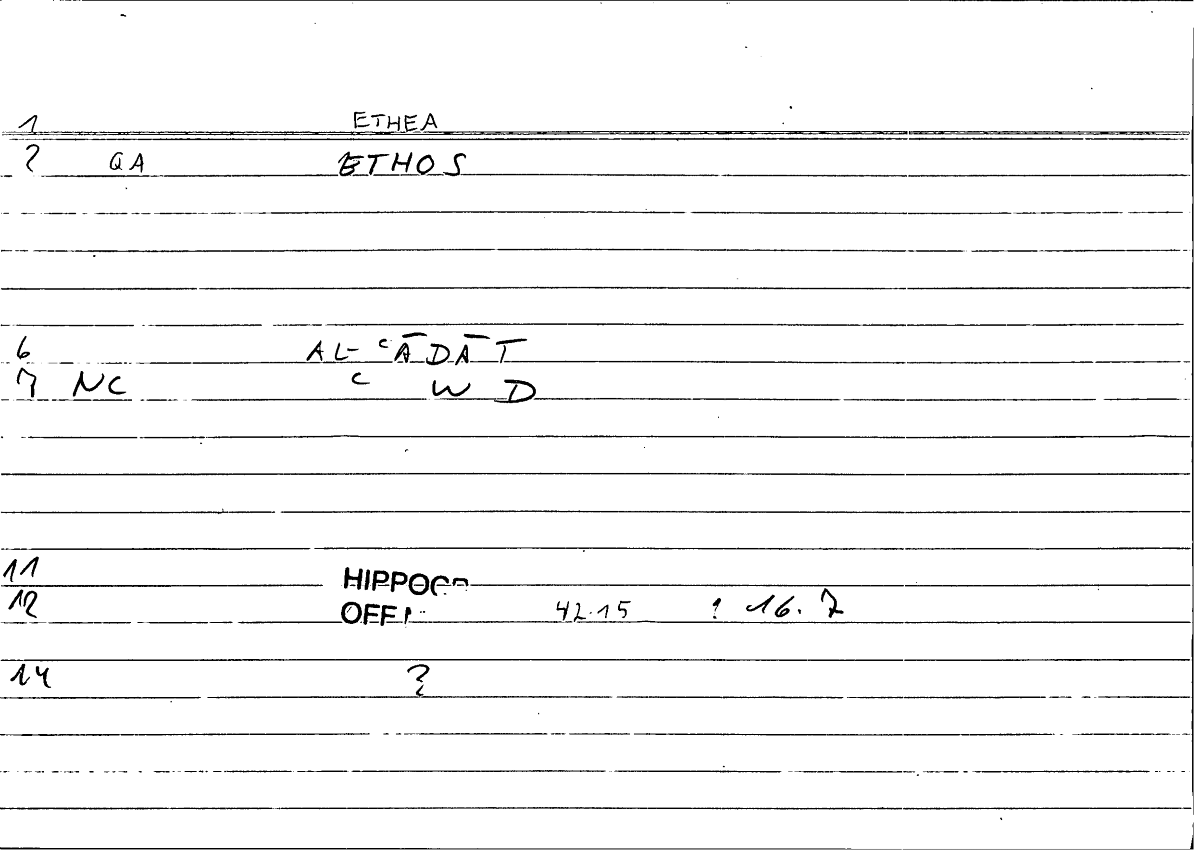 1 ETHEA
2 QA ETHOS
6 AL-ʿĀDĀT
7 NC ʿ W D
11 HIPPOCR
12 OFF 42.15 : 16.7
14 ?